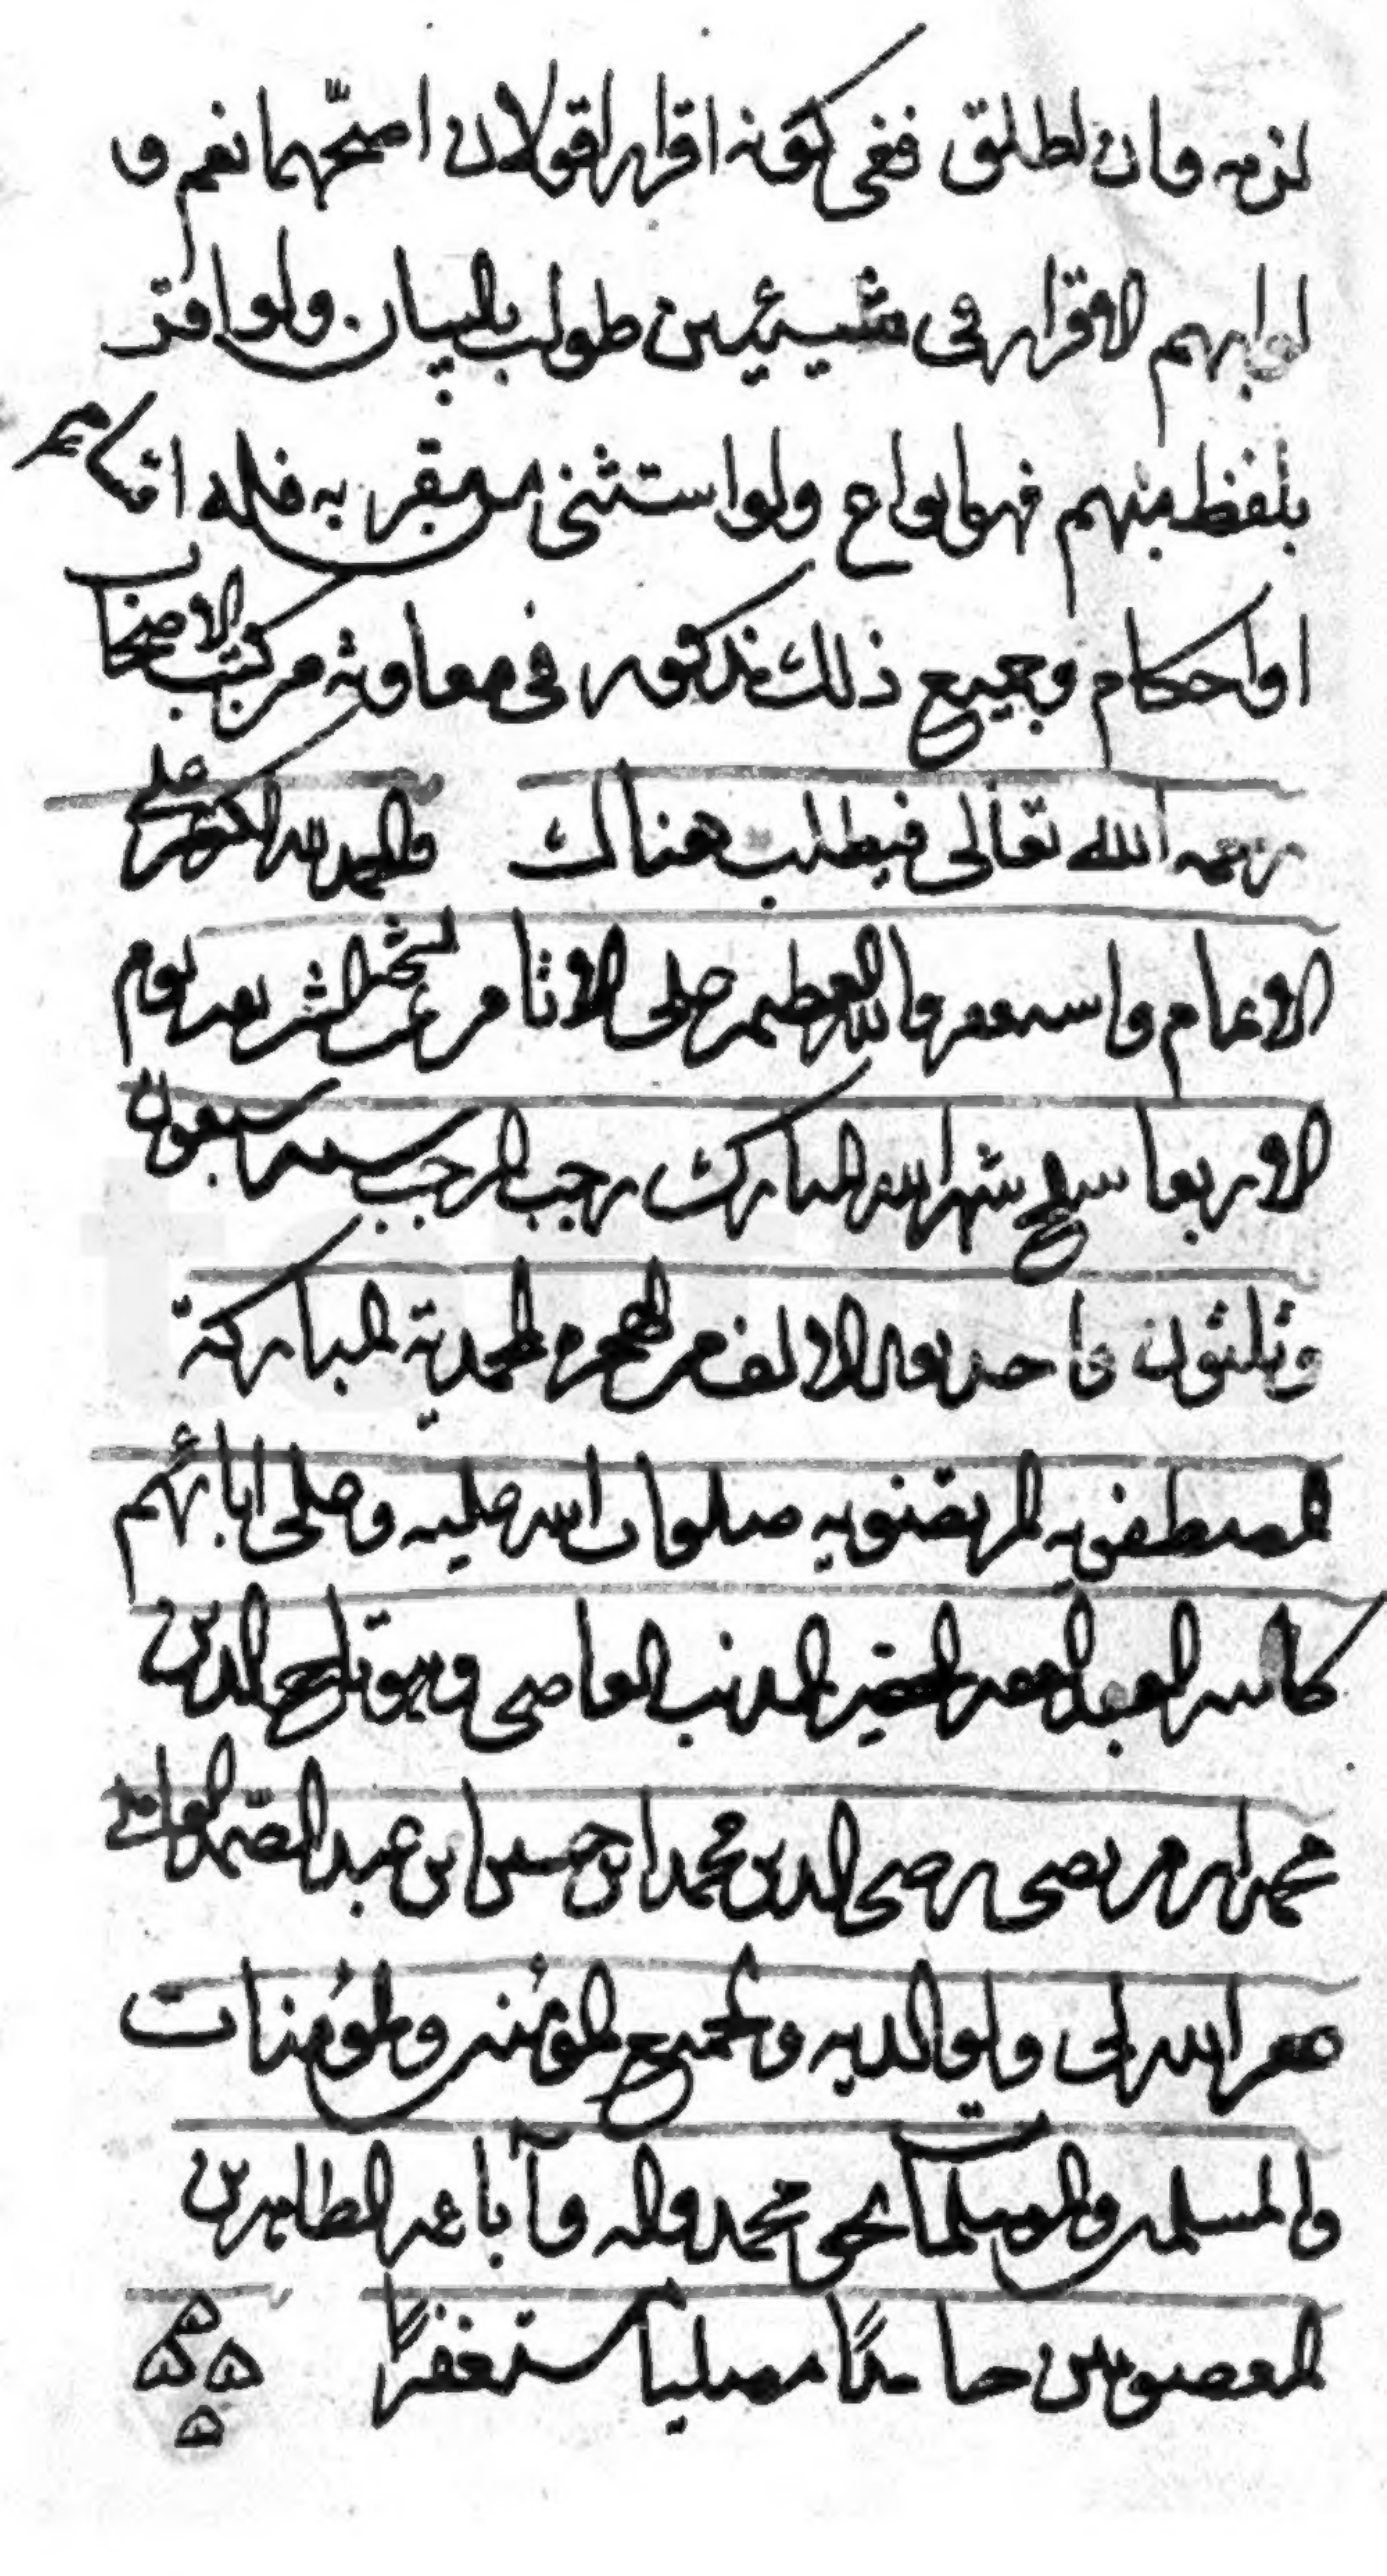 لزمه وان اطلق ففي كونه اقرار اقولان اصحّهما نعم و
لو ابهم الاقرار في شيئين طولب بالبيان ولو اقر
بلفظ مبهم فهو انواع ولو استثنى من مقر به فله اقسام
او احكام وجميع ذلك مذكور في معاونه من كتب الاصحاب
رحمه الله تعالى فيطلب هناك والحمد لله الكريم على
الانعام واستغفر الله العظيم على الاثام من عن الشر بعد يوم
الاربعا سلخ شهر الله المبارك رجب المرجب سنه سبعون
وثلثون واحد بعد الالف من الهجره المحمدية المباركة
المصطفويه المرتضويه صلوات الله عليه وعلى ابائهم
كاتبه العبد الفقير الحقير المذنب العاصي وهو تاج الدين
محمد ابن مرتضى رضي الدين محمد ابن حسين ابن عبد الصمد
غفر الله لي ولوالديه ولجميع المؤمنين والمؤمنات
والمسلمين والمسلمات بحق محمد واله وآبائه الطاهرين
المعصومين حامدًا مصليا مستغفرًا